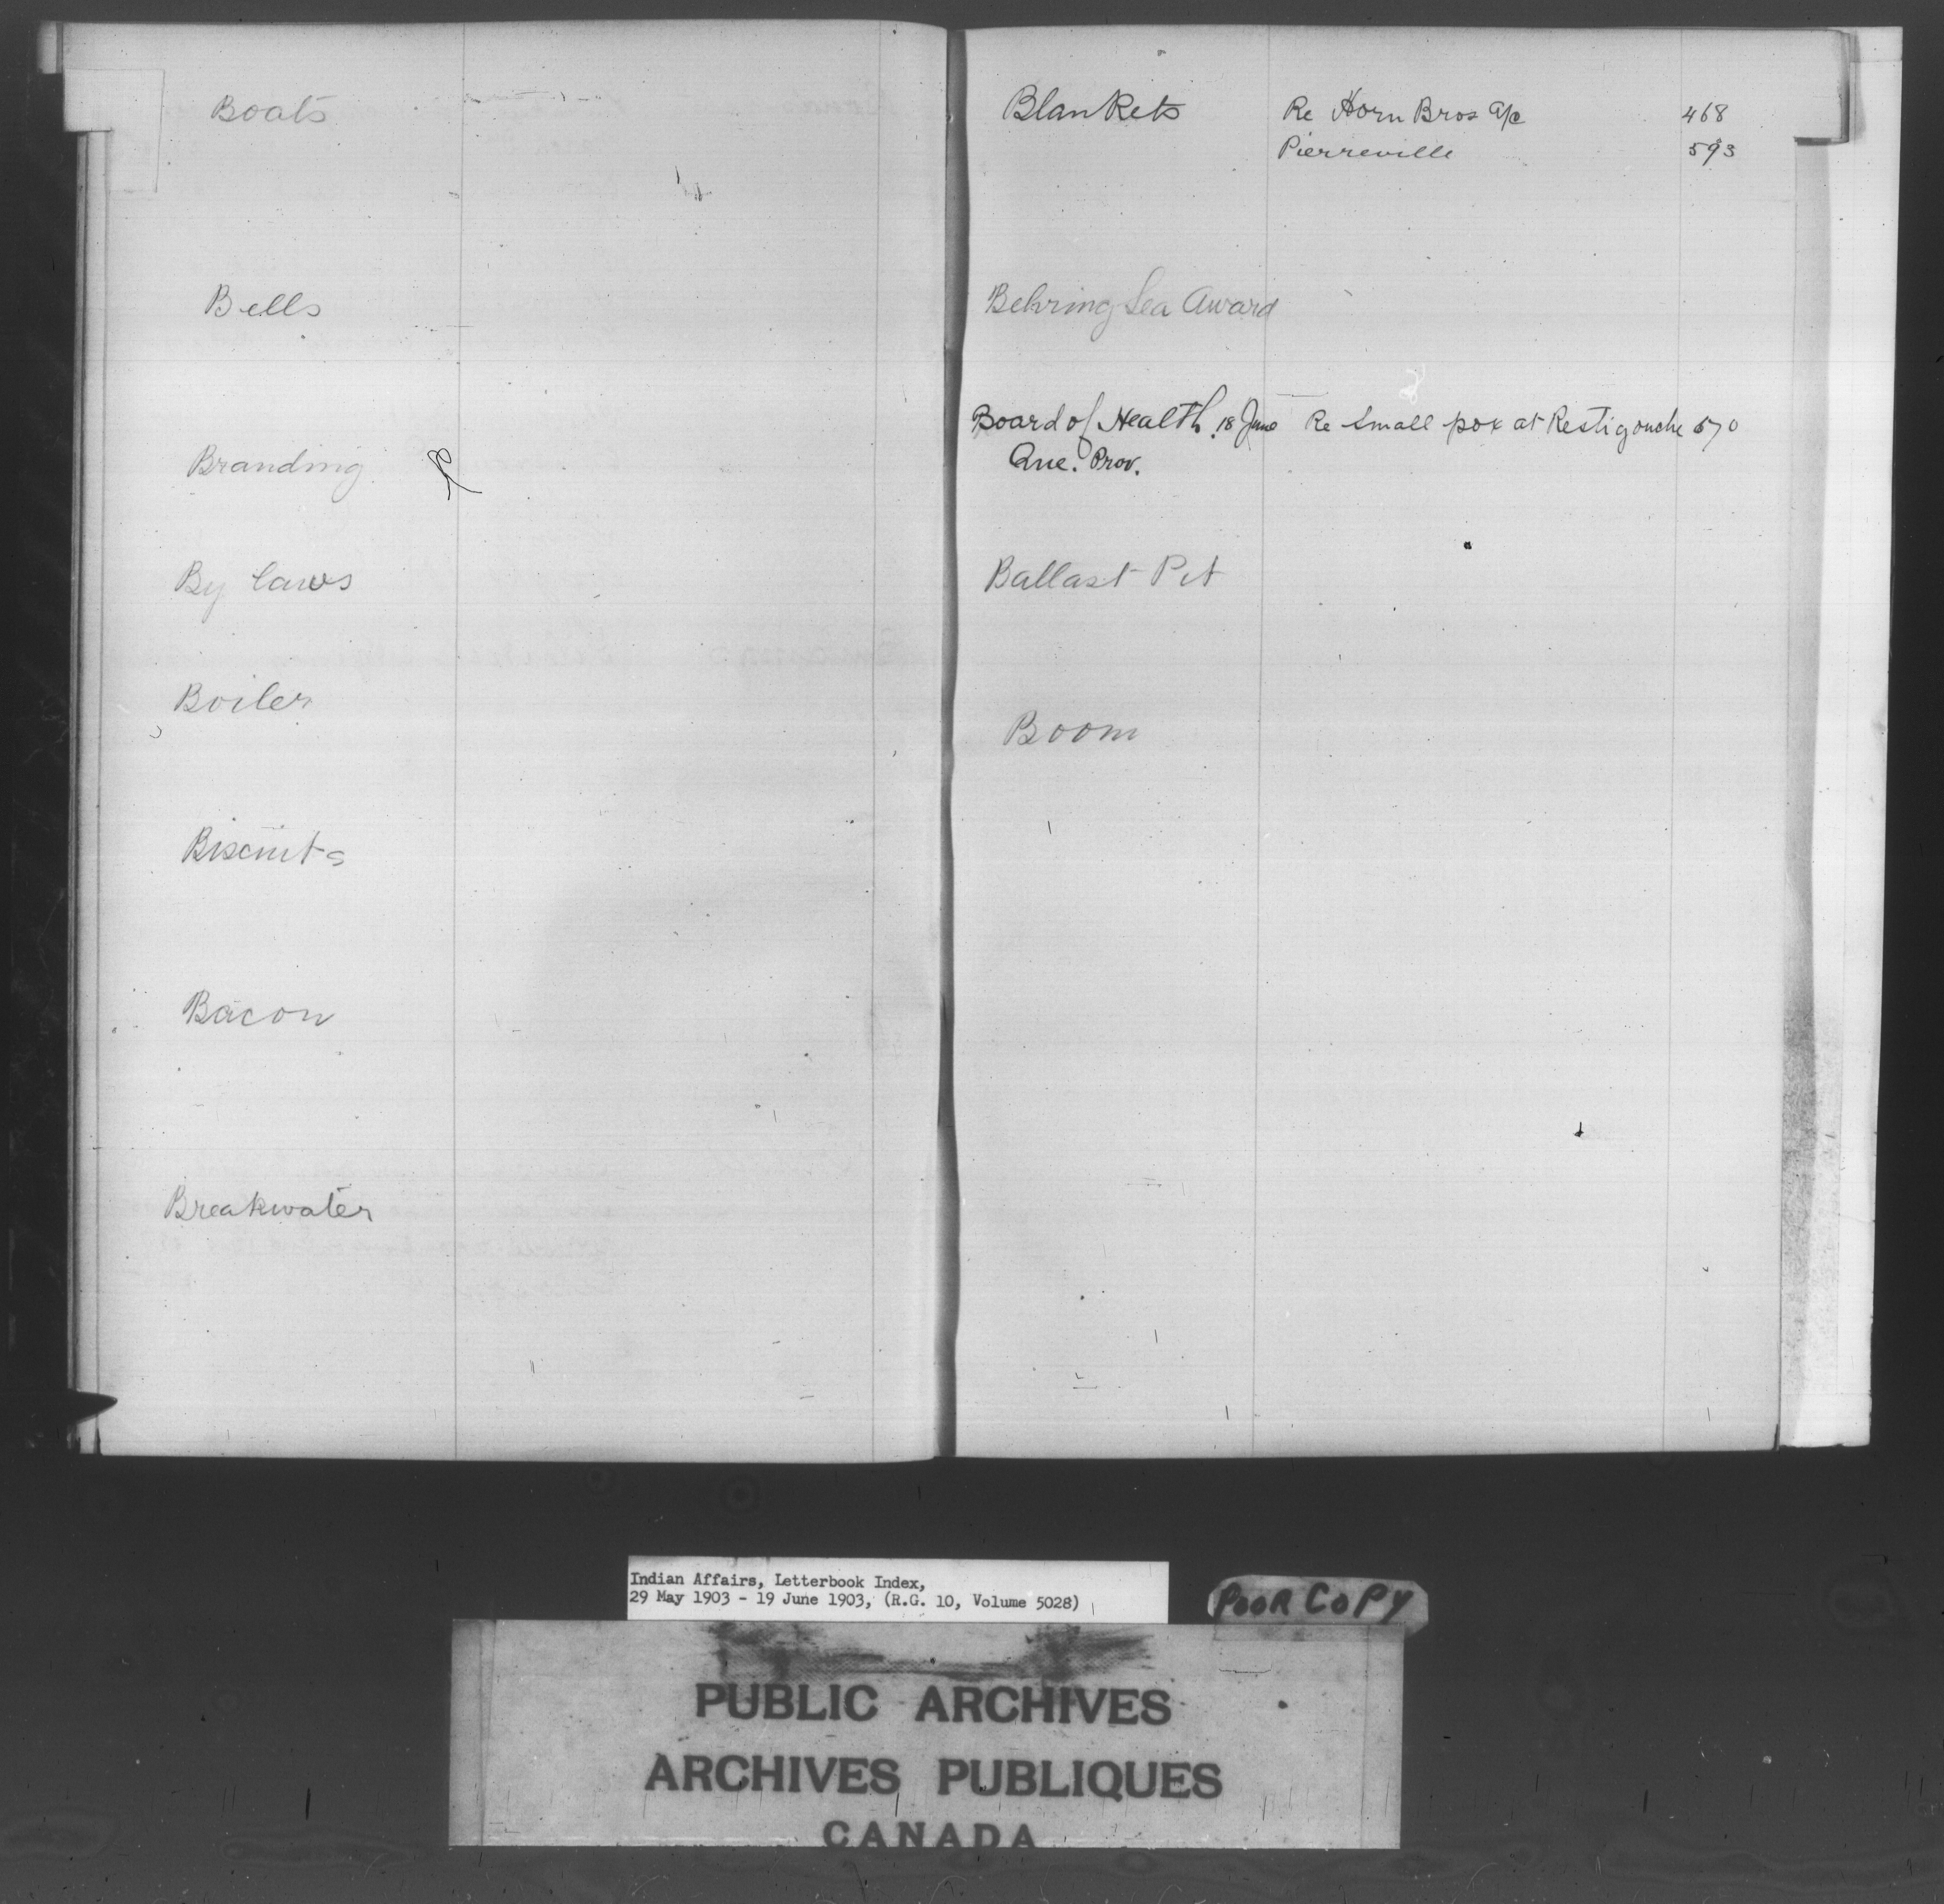 Boats
Bells
Branding
By laws
Boiler
Biscuits
Bacon
Breakwater
Blankets Re Horn Bros a/c 468
Pierreville 593
Behring Sea Award
Board of Health 18 June Re Small pox at Restigouche 570
Que. Prov.
Ballast Pit
Boom
Indian Affairs, Letterbook Index,
29 May 1903 - 19 June 1903, (R.G. 10, Volume 5028)
POOR COPY
PUBLIC ARCHIVES
ARCHIVES PUBLIQUES
CANADA